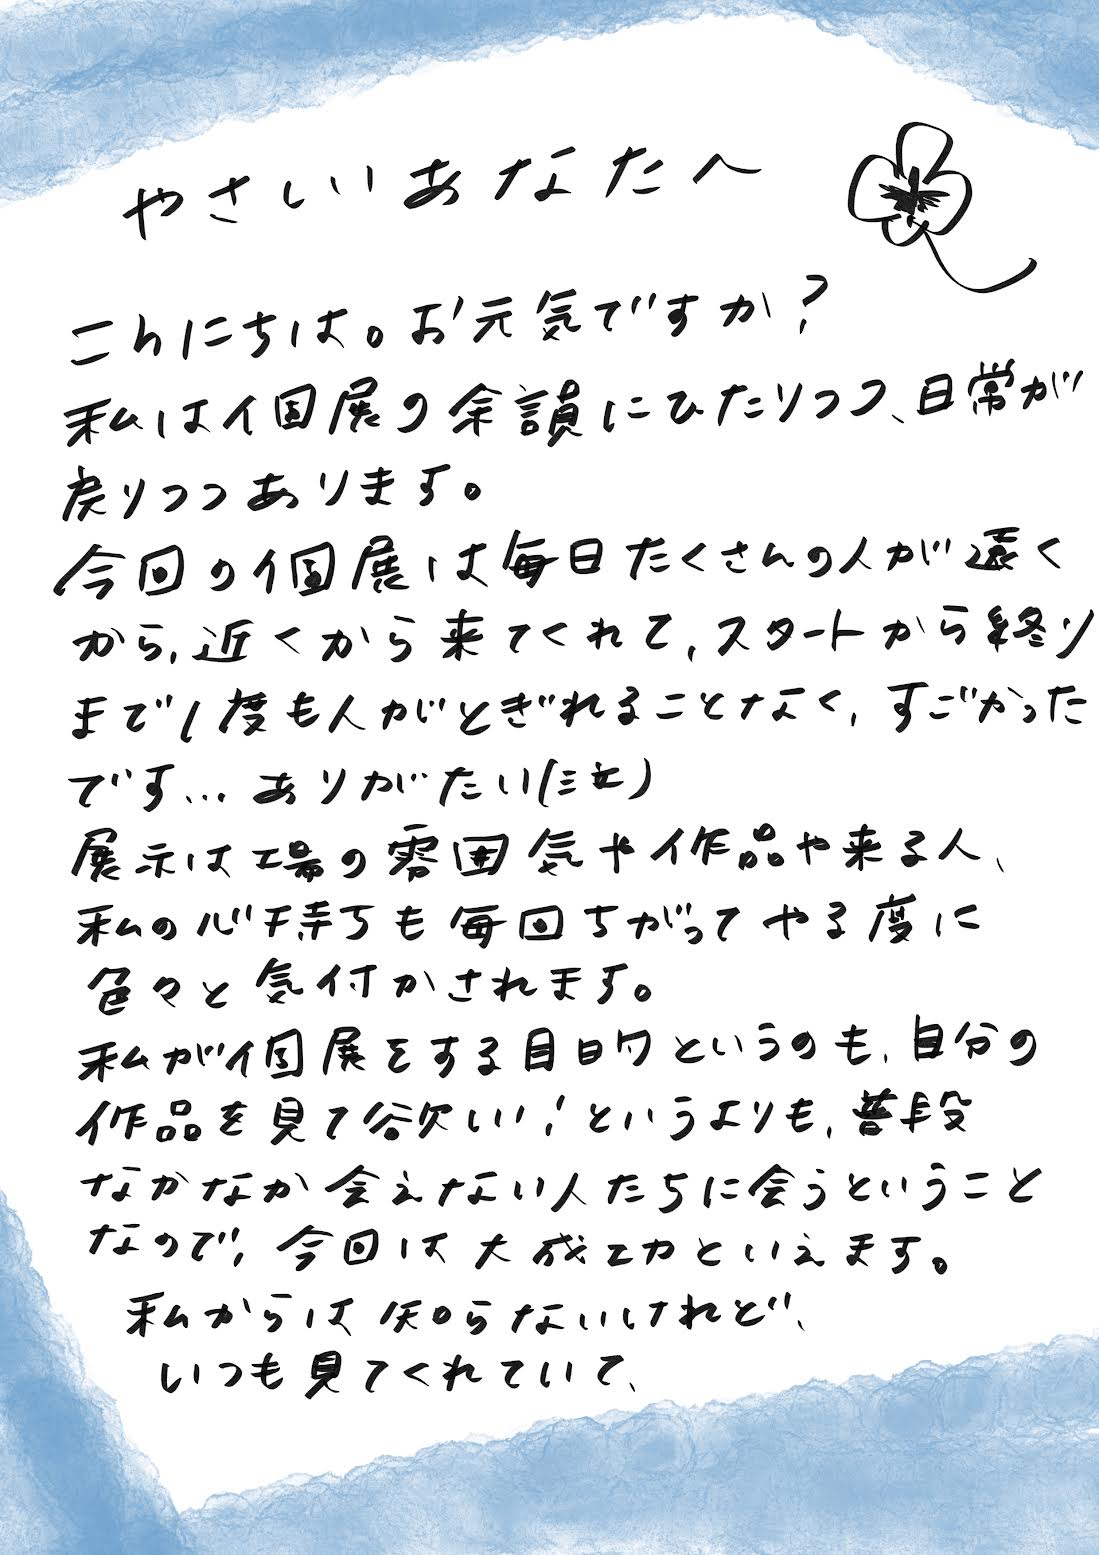 やさしいあなたへ
こんにちは。お元気ですか?
私は個展の余韻にひたりつつ、日常が
戻りつつあります。
今回の個展は毎日たくさんの人が遠く
から、近くから来てくれて、スタートから終り
まで1度も人がとぎれることなく、すごかった
です…ありがたい(泣)
展示は場の雰囲気や作品や来る人、
私の心持ちも毎回ちがってやる度に
色々と気付かされます。
私が個展をする目的というのも、自分の
作品を見て欲しい!というよりも、普段
なかなか会えない人たちに会うということ
なので、今回は大成功といえます。
私からは知らないけれど、
いつも見てくれていて、